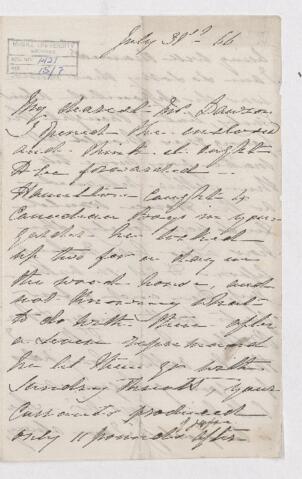 McGILL UNIVERSITY
ARCHIVES
ACC. NO. 1421
REF. 15/7
July 31st 66
My dearest Mr. Dawson
I opened the enclosed
and think it ought
to be forwarded —
Hamilton caught 4
Canadian Boys in your
garden he locked
up two for a day in
the wood house, and
not knowing what
to do with them after
a severe reprimand
he let them go with
sundry threats your
Currants produced
only 11 pounds after